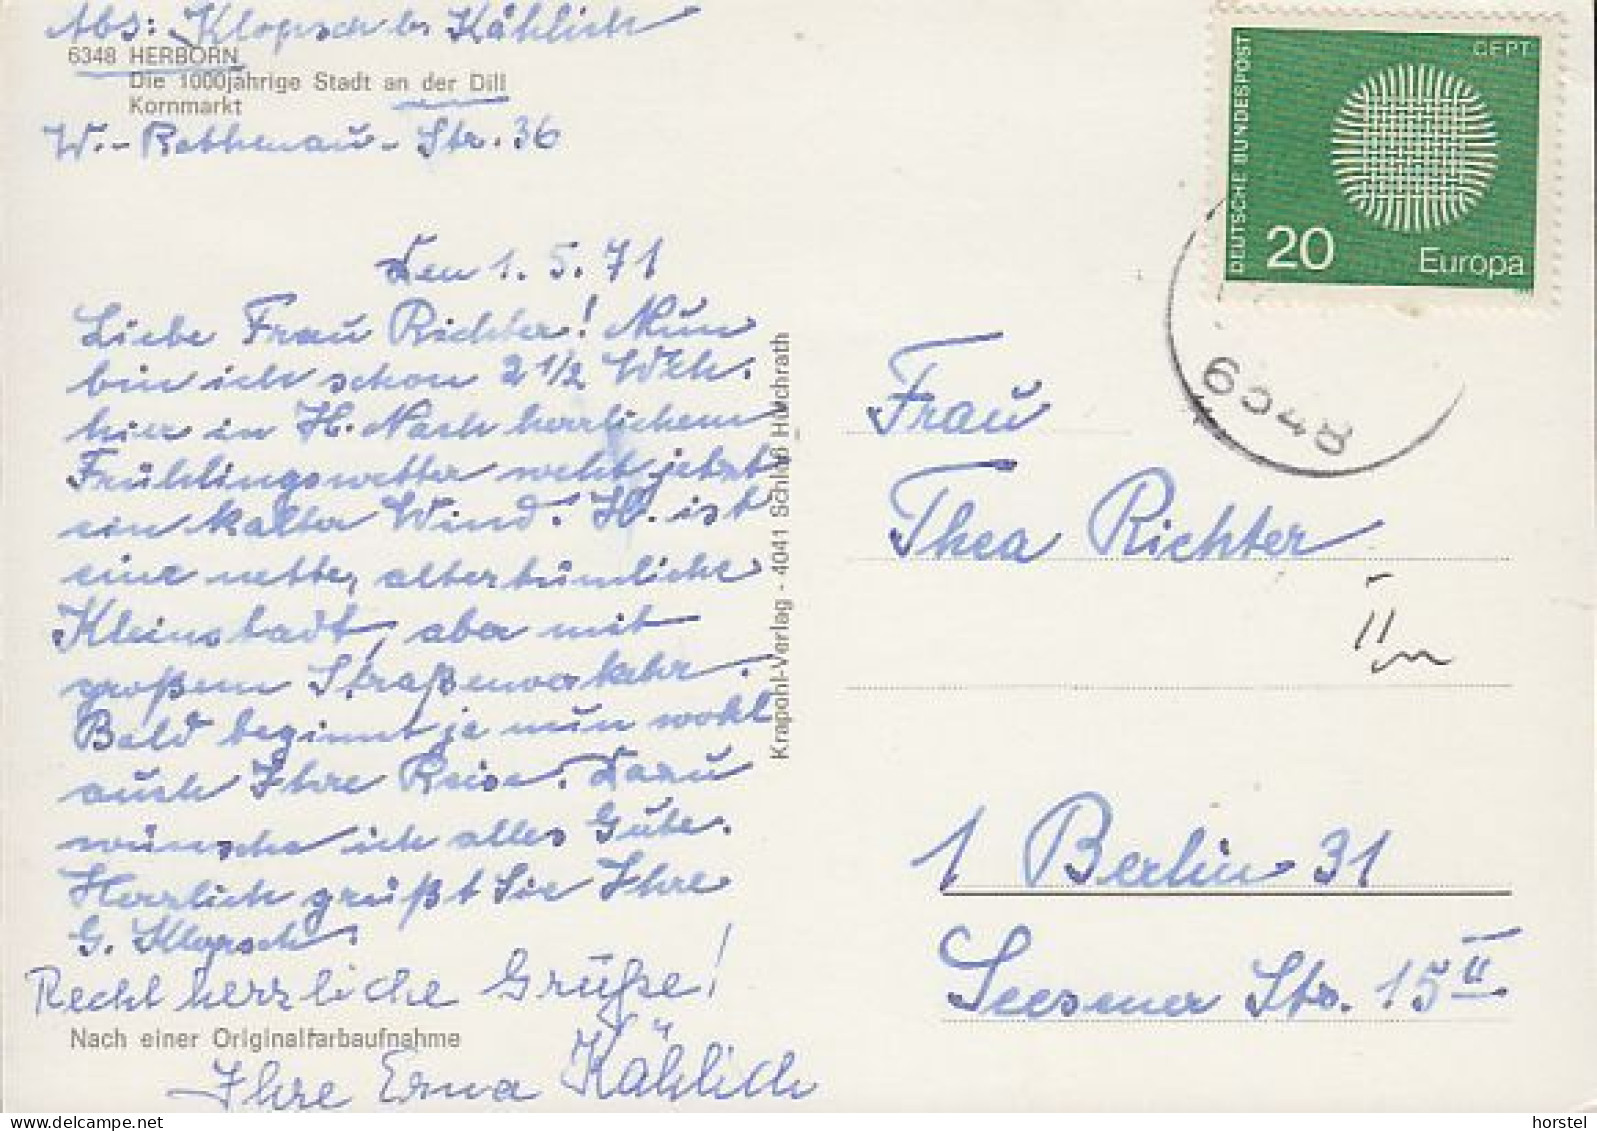 Abs: Klopsch b. Kählich
6348 HERBORN
Die 1000jährige Stadt an der Dill
Kornmarkt
W.-Rathenau-Str. 36
Den 1. 5. 71
Liebe Frau Richter! Nun
bin ich schon 2 1/2 Wch.
hier in H. Nach herrlichem
Frühlingswetter weht jetzt
ein kalter Wind. H. ist
eine nette, altertümliche
Kleinstadt, aber mit
großem Straßenverkehr.
Bald beginnt ja nun wohl
auch Ihre Reise. Dazu
wünsche ich alles Gute.
Herzlich grüßt Sie Ihre
G. Klopsch.
Recht herzliche Grüße!
Nach einer Originalfarbaufnahme
Ihre Erna Kählich
Krapohl-Verlag - 4041 Schloß Hülchrath
DEUTSCHE BUNDESPOST
CEPT
20
Europa
Frau
Thea Richter
II
1 Berlin 31
Seesener Str. 15 II
horstel